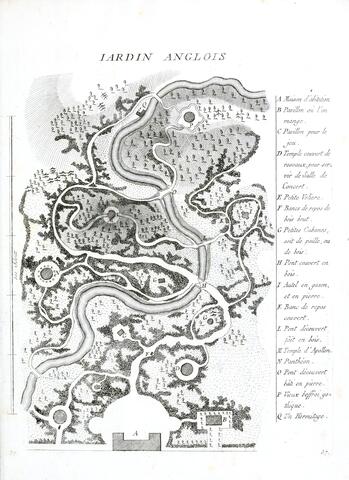 IARDIN ANGLOIS
A Maison d'abitation
B Pavillon où l'on
mange.
C Pavillon pour le
jeu.
D Temple couvert de
roseaux, pour ser-
vir de Salle de
Concert.
E Petite Voliere.
F Bancs de repos de
bois brut.
G Petites Cabanes,
soit de paille, ou
de bois
H Pont couvert en
bois.
I Autel en gazon,
et en pierre.
K Banc de repos
couvert.
L Pont découvert
bâti en bois.
M Temple d'Apollon.
N Panthéon.
O Pont découvert
bâti en pierre.
P Vieux beffroi go-
thique.
Q Un Hermitage.
A